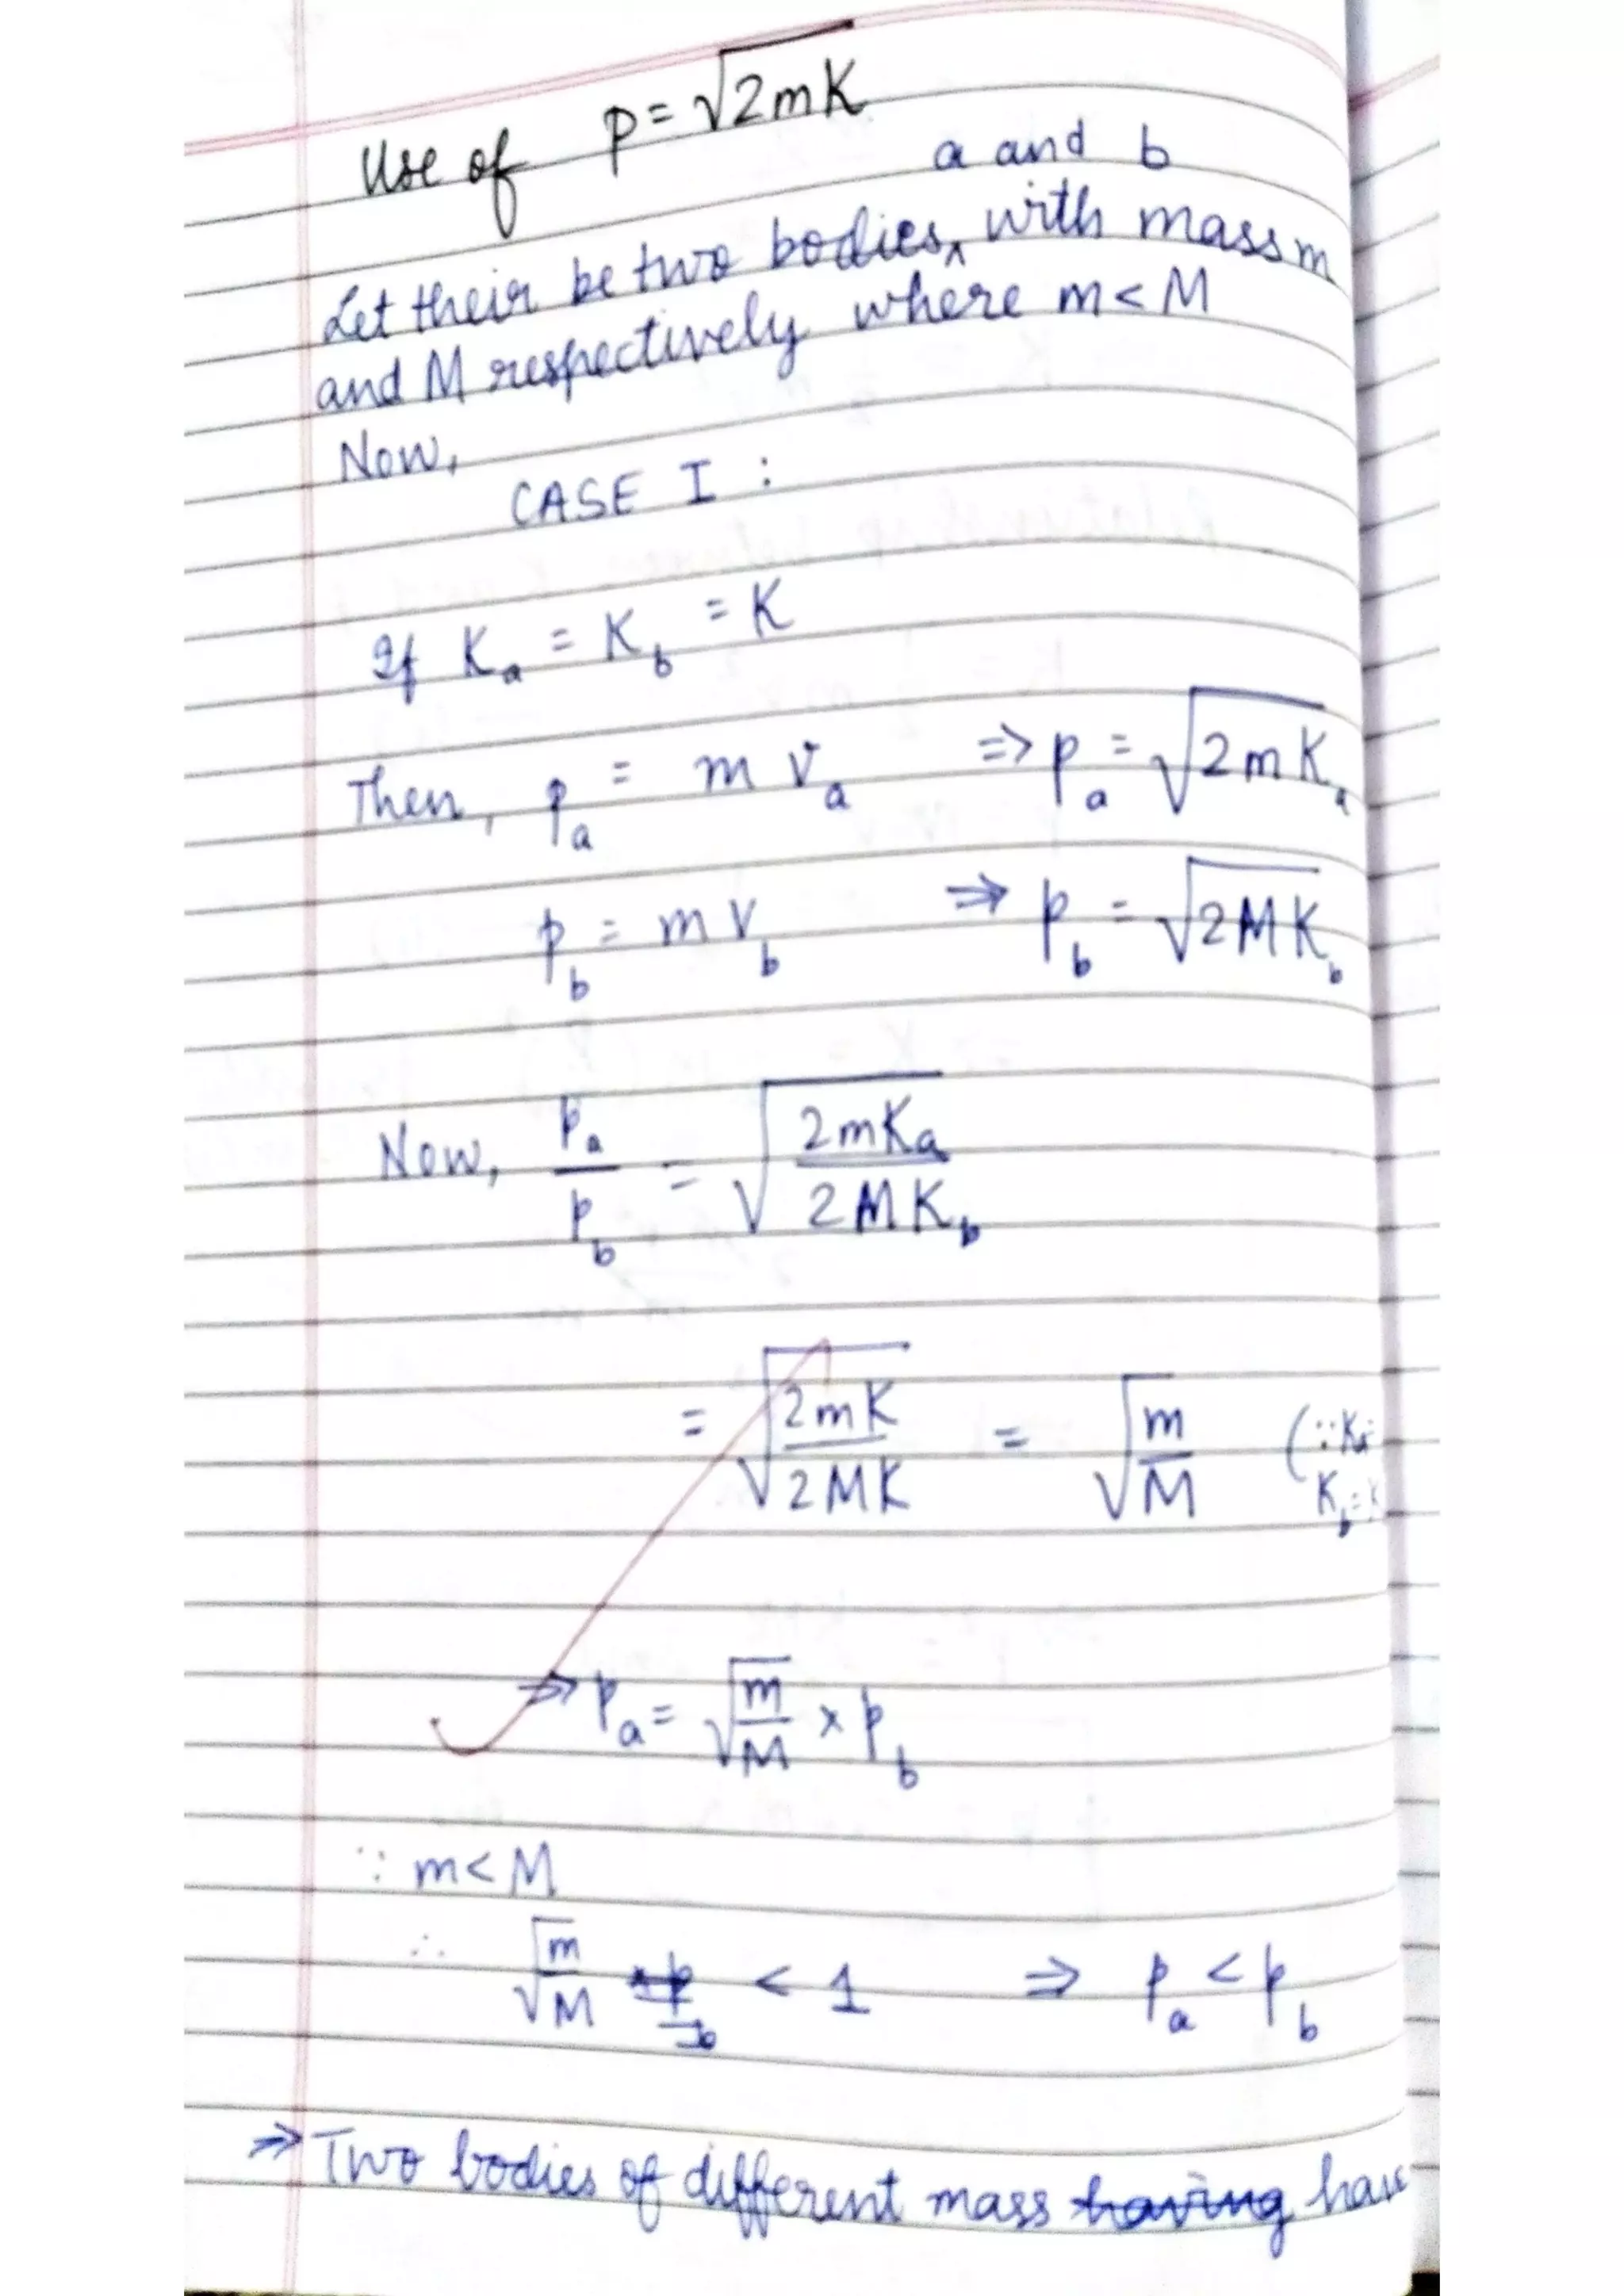 Use of p = √2mK
a and b
Let their be two bodies, with mass m
and M respectively where m < M
Now,
CASE I :
If Ka = Kb = K
Then, pa = m va ⇒ pa = √2mKa
pb = m vb ⇒ pb = √2MKb
Now, pa/pb = √(2mKa/2MKb)
= √(2mK/2MK) = √(m/M) (∵ Ka=
Kb=K
⇒ pa = √(m/M) × pb
∵ m < M
∴ √(m/M) < 1 ⇒ pa < pb
⇒ Two bodies of different mass having have